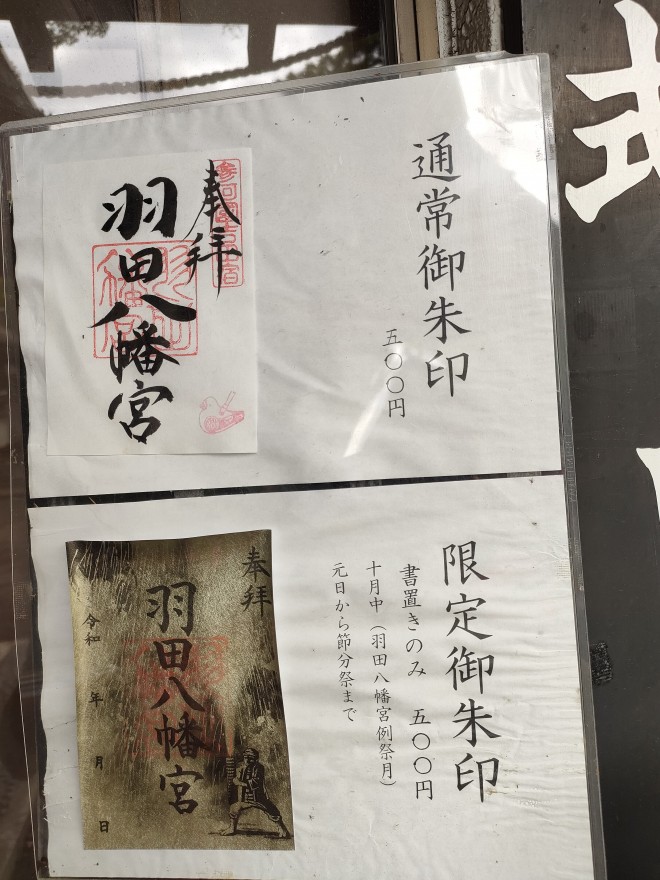 通常御朱印
五〇〇円
奉拝
羽田八幡宮
限定御朱印
書置きのみ 五〇〇円
十月中（羽田八幡宮例祭月）
元日から節分祭まで
奉拝
羽田八幡宮
令和 年 月 日